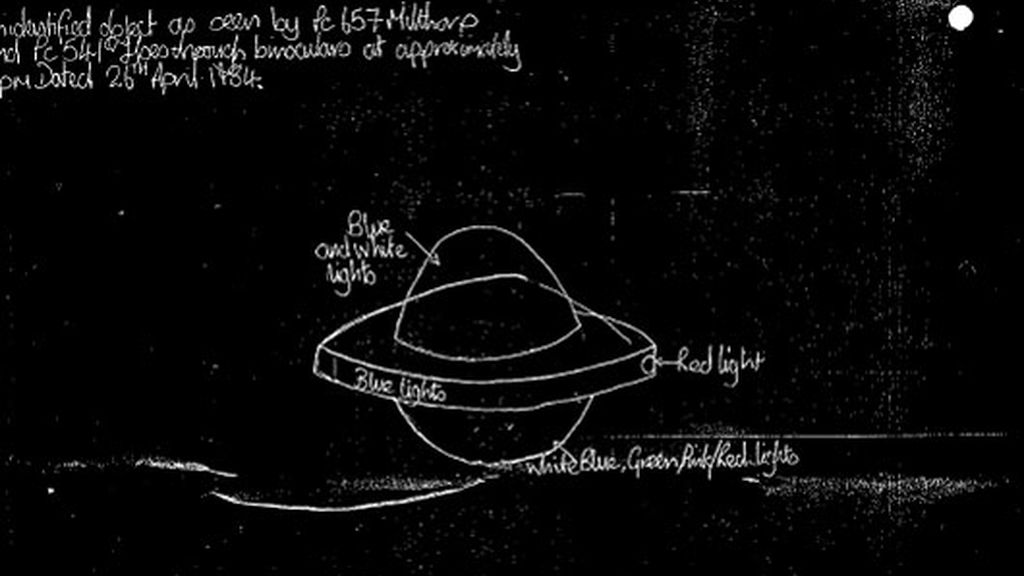 nidentified object as seen by Pc 657 Milthorp
nd Pc 541 through binoculars at approximately
pm Dated 26th April 1984.
Blue
and white
lights
Red light
Blue lights
White Blue, Green/Pink/Red lights